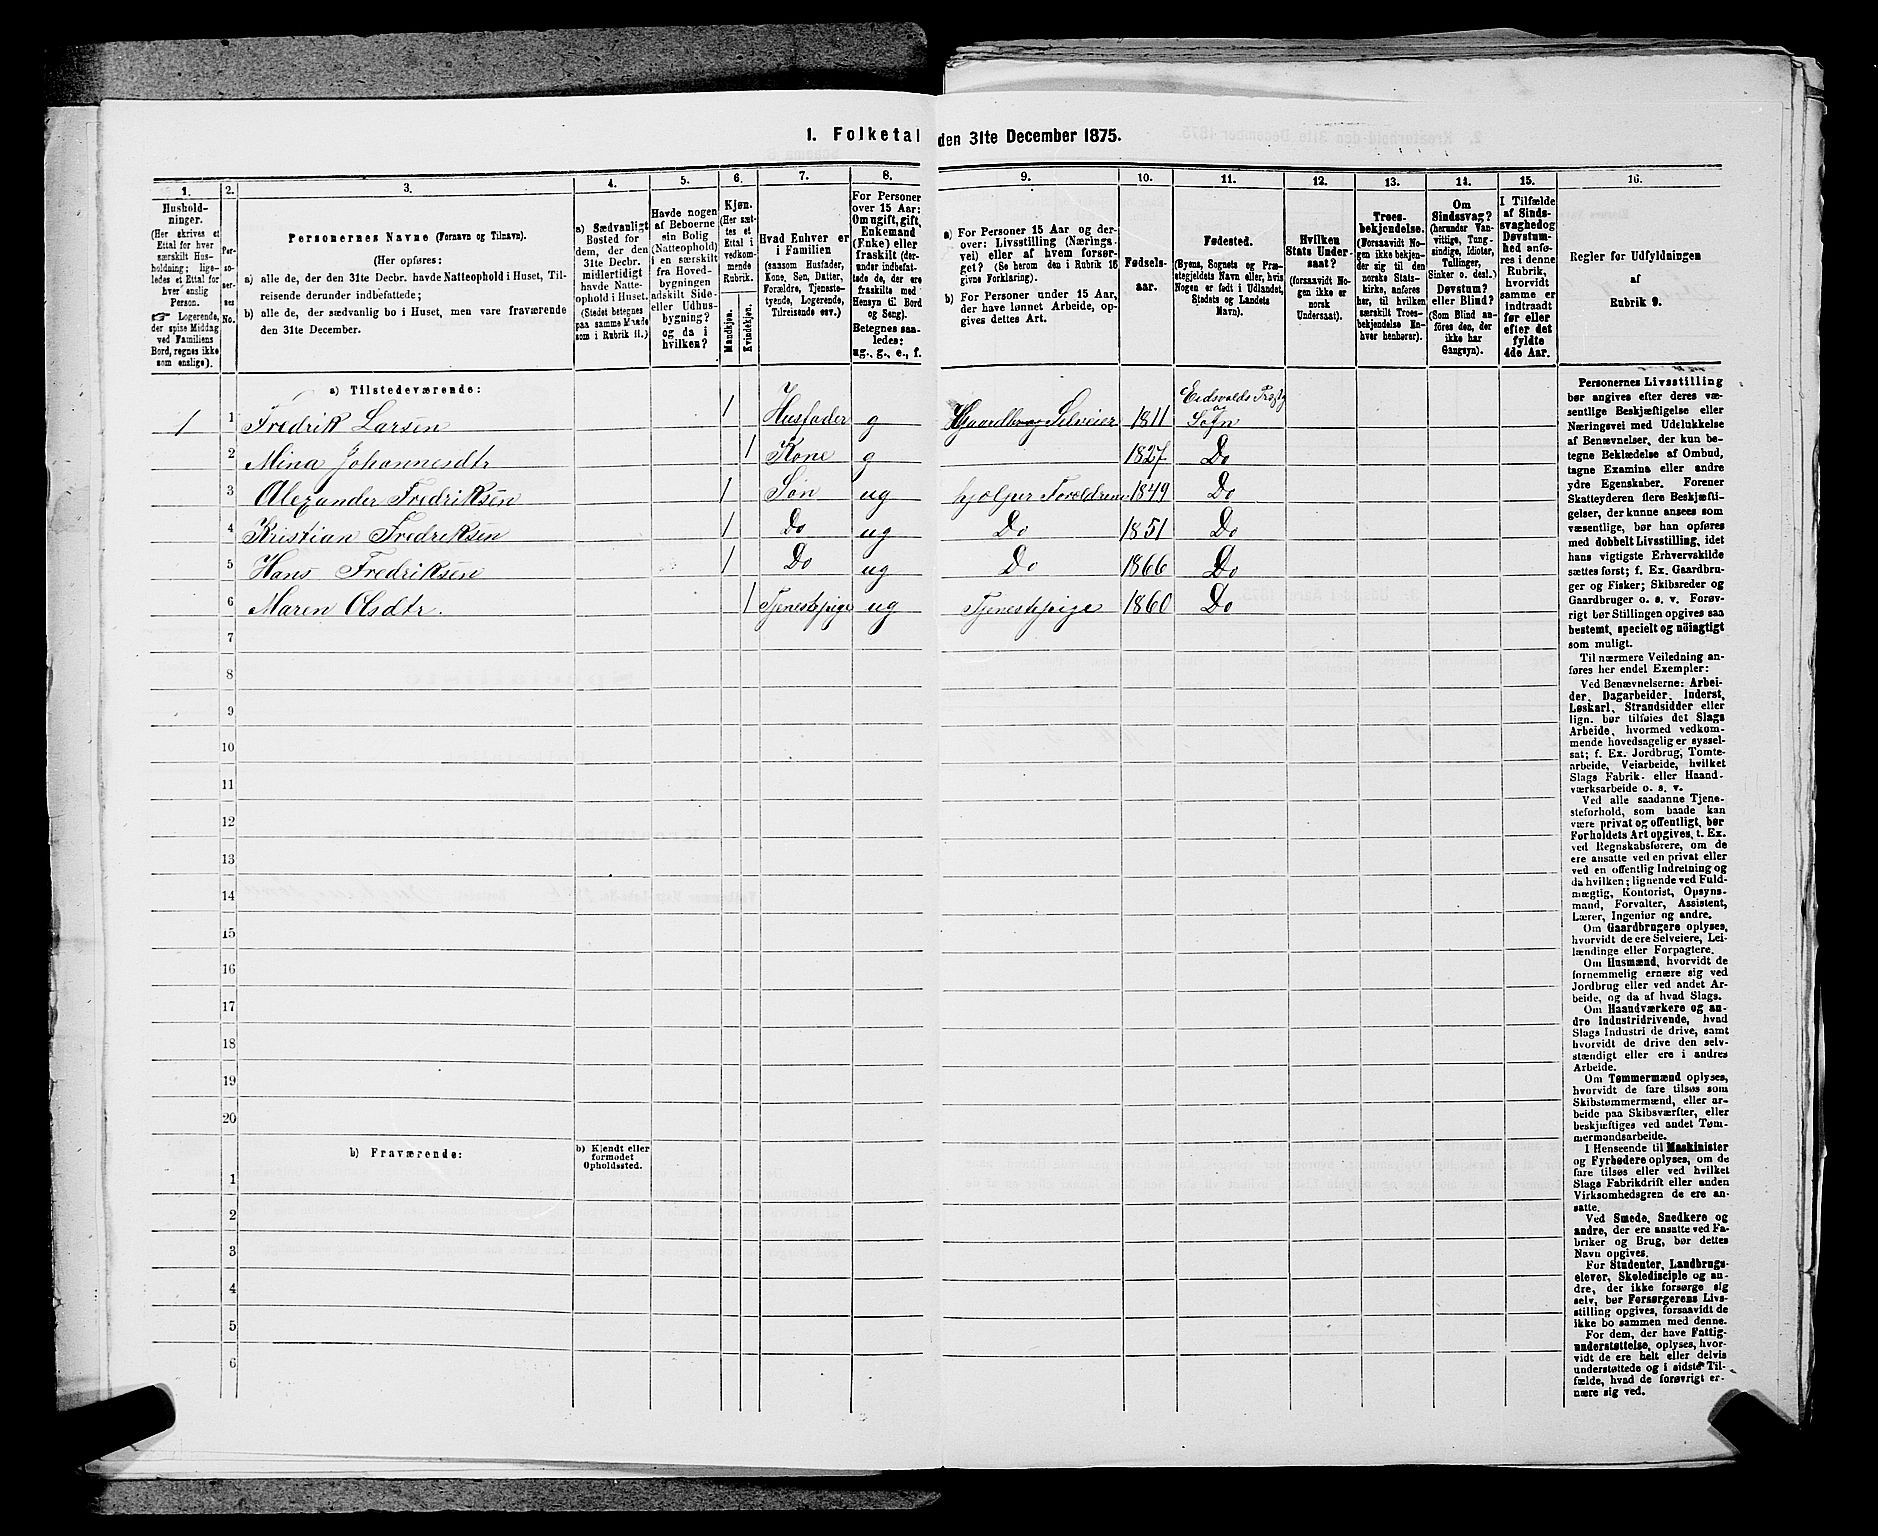 1. Folketal den 31te December 1875.
1. 2. 3. 4. 5. 6. 7. 8. 9. 10. 11. 12. 13. 14. 15. 16.
Hushold-
ninger.
(Her skrives et
Ettal for hver
særskilt Hus-
holdning; lige-
ledes et Ettal for
hver enslig
Person.
☞ Logerende,
der spise Middag
ved Familiens
Bord, regnes ikke
som enslige).
Per-
so-
ner-
nes
No.
Personernes Navne (Fornavn og Tilnavn).
(Her opføres:
a) alle de, der den 31te Decbr. havde Natteophold i Huset, Til-
reisende derunder indbefattede;
b) alle de, der sædvanlig bo i Huset, men vare fraværende
den 31te December.
a) Sædvanligt
Bosted for
dem, der den
31te Decbr.
midlertidigt
havde Natte-
ophold i Huset.
(Stedet betegnes
paa samme Maade
som i Rubrik 11.)
Havde nogen
af Beboerne
sin Bolig
(Natteophold)
i en særskilt
fra Hoved-
bygningen
adskilt Side-
eller Udhus-
bygning?
og da i
hvilken?
Kjøn.
(Her sæt-
tes et
Ettal i
vedkom-
mende
Rubrik.
Mandkjøn.
Kvindekjøn.
Hvad Enhver er
i Familien
(saasom Husfader,
Kone, Søn, Datter,
Forældre, Tjeneste-
tyende, Logerende,
Tilreisende osv.)
For Personer
over 15 Aar:
Om ugift, gift,
Enkemand
(Enke) eller
fraskilt (der-
under indbefat-
tede de, der ere
fraskilte med
Hensyn til Bord
og Seng).
Betegnes saa-
ledes:
ug., g., e., f.
a) For Personer 15 Aar og der-
over: Livsstilling (Nærings-
vei) eller af hvem forsør-
get? (Se herom den i Rubrik 16
givne Forklaring).
b) For Personer under 15 Aar,
der have lønnet Arbeide, op-
gives dettes Art.
Fødsels-
aar.
Fødested.
(Byens, Sognets og Præ-
stegjeldets Navn eller, hvis
Nogen er født i Udlandet,
Stedets og Landets
Navn).
Hvilken
Stats Under-
saat?
(forsaavidt No-
gen ikke er
norsk
Undersaat).
Troes-
bekjendelse.
(Forsaavidt No-
gen ikke bekjen-
der sig til den
norske Stats-
kirke, anføres
her, til hvilken
særskilt Troes-
bekjendelse En-
hver henhører).
Om
Sindssvag?
(herunder Van-
vittige, Tung-
sindige, Idioter,
Tullinger,
Sinker o. desl.)
Døvstum?
eller Blind?
(Som Blind an-
føres den, der
ikke har
Gangsyn).
I Tilfælde
af Sinds-
svaghed og
Døvstum-
hed anfø-
res i denne
Rubrik,
hvorvidt
samme er
indtraadt
før eller
efter det
fyldte
4de Aar.
Regler for Udfyldningen
af
Rubrik 9.
a) Tilstedeværende:
1 1 Fredrik Larsen 1 Husfader g Gaardbrug Selveier 1811 Eidsvolds Prgtg
a
Sogn
2 Mina Johannesdtr 1 Kone g 1827 Do
3 Alexander Fredriksen 1 Søn ug hjælper Foreldrene 1849 Do
4 Kristian Fredriksen 1 Do ug Do 1851 Do
5 Hans Fredriksen 1 Do ug Do 1866 Do
6 Maren Olsdtr. 1 Tjenestepige ug Tjenestepige 1860 Do
7
8
9
10
11
12
13
14
15
16
17
18
19
20
b) Fraværende:
b) Kjendt eller
formodet
Opholdssted.
1
2
3
4
5
6
Personernes Livsstilling
bør angives efter deres væ-
sentlige Beskjæftigelse eller
Næringsvei med Udelukkelse
af Benævnelser, der kun be-
tegne Beklædelse af Ombud,
tagne Examina eller andre
ydre Egenskaber. Forener
Skatteyderen flere Beskjæfti-
gelser, der kunne ansees som
væsentlige, bør han opføres
med dobbelt Livsstilling, idet
hans vigtigste Erhvervskilde
sættes først; f. Ex. Gaardbru-
ger og Fisker; Skibsreder og
Gaardbruger o. s. v. Forøv-
rigt bør Stillingen opgives saa
bestemt, specielt og nöiagtigt
som muligt.
Til nærmere Veiledning an-
føres her endel Exempler:
Ved Benævnelserne: Arbei-
der, Dagarbeider, Inderst,
Løskarl, Strandsidder eller
lign. bør tilføies det Slags
Arbeide, hvormed vedkom-
mende hovedsagelig er syssel-
sat; f. Ex. Jordbrug, Tomte-
arbeide, Veiarbeide, hvilket
Slags Fabrik- eller Haand-
værksarbeide o. s. v.
Ved alle saadanne Tjene-
steforhold, som baade kan
være privat og offentligt, bør
Forholdets Art opgives, t. Ex.
ved Regnskabsførere, om de
ere ansatte ved en privat eller
ved en offentlig Indretning og
da hvilken; lignende ved Fuld-
mægtig, Kontorist, Opsyns-
mand, Forvalter, Assistent,
Lærer, Ingeniør og andre.
Om Gaardbrugere oplyses,
hvorvidt de ere Selveiere, Lei-
lændinge eller Forpagtere.
Om Husmænd, hvorvidt de
fornemmelig ernære sig ved
Jordbrug eller ved andet Ar-
beide, og da af hvad Slags.
Om Haandværkere og an-
dre Industridrivende, hvad
Slags Industri de drive, samt
hvorvidt de drive den selv-
stændigt eller ere i andres
Arbeide.
Om Tømmermænd oplyses,
hvorvidt de fare tilsøs som
Skibstømmermænd, eller ar-
beide paa Skibsværfter, eller
beskjæftiges ved andet Tøm-
mermandsarbeide.
I Henseende til Maskinister
og Fyrbødere oplyses, om de
fare tilsøs eller ved hvilket
Slags Fabrikdrift eller anden
Virksomhedsgren de ere an-
satte.
Ved Smede, Snedkere og
andre, der ere ansatte ved Fa-
briker og Brug, bør dettes
Navn opgives.
For Studenter, Landbrugs-
elever, Skoledisciple og an-
dre, der ikke forsørge sig
selv, bør Forsørgerens Livs-
stilling opgives, forsaavidt de
ikke bo sammen med denne.
For dem, der have Fattig-
understøttelse, oplyses, hvor-
vidt de ere helt eller delvis
understøttede og i sidste Til-
fælde, hvad de forøvrigt er-
nære sig ved.